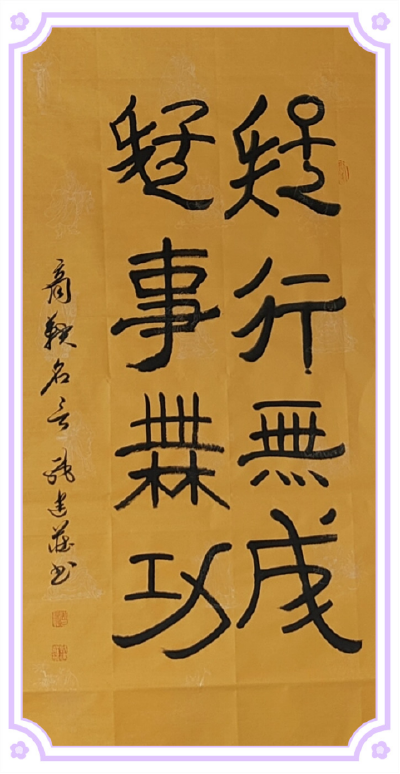 疑行無成
疑事無功
商鞅名言 張建莊書